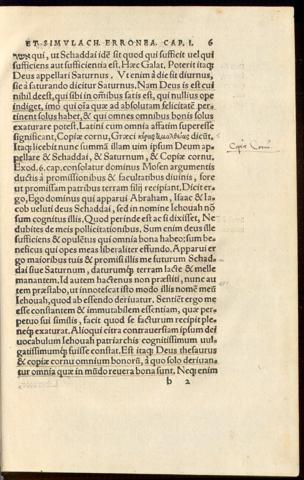 ET SIMVLACH. ERRONEA. CAP. I. 6
qui, ut Schaddai idē sit quod qui sufficit uel qui
sufficiens aut sufficientia est. Hæc Galat. Poterit itaq;
Deus appellari Saturnus, Vt enim à die sit diurnus,
sic à saturando dicitur Saturnus. Nam Deus is est cui
nihil deest, qui sibi in omnibus satis est, qui nullius ope
indiget, imò qui oīa quæ ad absolutam felicitatē per=
tinent solus habet, & qui omnes omnibus bonis solus
exaturare potest, Latini cum omnia affatim superesse
significant, Copiæ cornu, Græci dicūt,
Itaq; licebit nunc summā illam uim ipsum Deum ap=
pellare & Schaddai, & Saturnum, & Copiæ cornu.
Copiæ Cornu.
Exod. 6. cap. consolatur dominus Mosen argumentis
ductis à promissionibus & facultatibus diuinis, fore
ut promissam patribus terram filij recipiant, Dicit er=
go, Ego dominus qui apparui Abraham, Isaac & Ia=
cob ueluti deus Schaddai, sed in nomine Iehouah nō
sum cognitus illis. Quod perinde est ac si dixisset, Ne
dubites de meis pollicitationibus. Sum enim deus ille
sufficiens & opulētus qui omnia bona habeo: sum be=
neficus qui opes meas liberaliter effundo. Apparui er
go maioribus tuis & promisi illis me futurum Schad=
dai siue Saturnum, daturumq; terram lacte & melle
manantem. Id autem hactenus non præstiti, nunc au
tem præstabo, ut innotescat isto modo illis nomē meū
Iehouah, quod ab essendo deriuatur. Sentiēt ergo me
esse constantem & immutabilem essentiam, quæ per=
petuo sui similis, facit quod se facturum recipit ple=
neq; exaturat. Alioqui citra contrauersiam ipsum dei
uocabulum Iehouah patriarchis cognitissimum uul=
gatissimumq; fuisse constat. Est itaq; Deus thesaurus
& copiæ cornu omnium bonorū, à quo solo deriuan=
tur omnia quæ in mūdo reuera bona sunt. Neq; enim
b 2